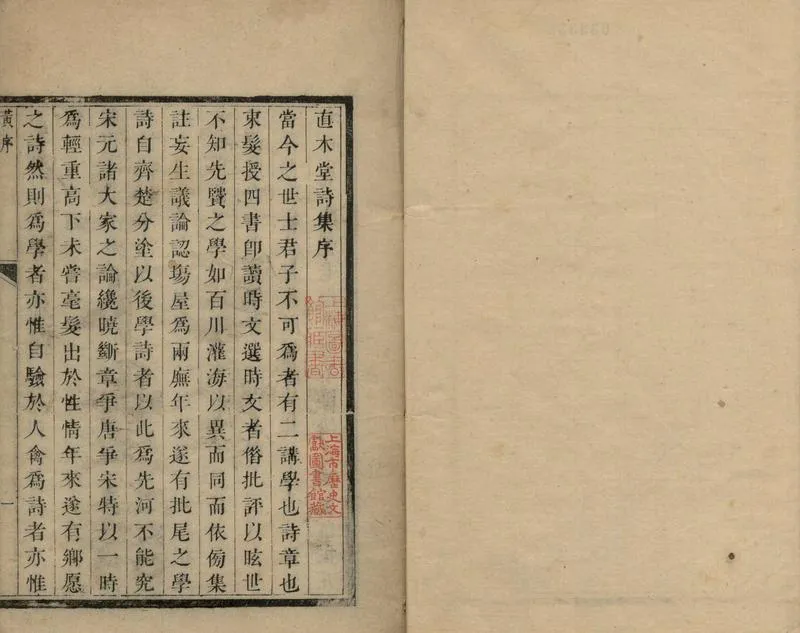 直木堂詩集序
當今之世士君子不可爲者有二講學也詩章也
束髮授四書卽讀時文選時文者俗批評以眩世
不知先賢之學如百川灌海以異而同而依傍集
註妄生議論認塲屋爲兩廡年來遂有批尾之學
詩自齊楚分塗以後學詩者以此爲先河不能究
宋元諸大家之論纔曉斷章爭唐爭宋特以一時
爲輕重高下未嘗毫髮出於性情年來遂有鄉愿
之詩然則爲學者亦惟自驗於人禽爲詩者亦惟
黃序
一
上海市歷史文
獻圖書館藏